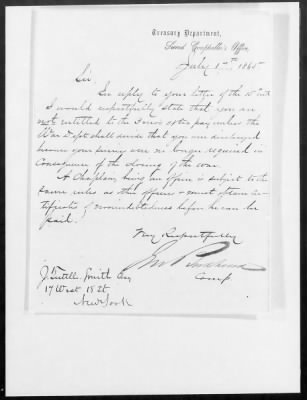 Treasury Department,
Second Comptroller's Office,
July 17th 1865
Sir
In reply to your letter of the 15th inst
I would respectfully state that you are
not entitled to the 3 mos extra pay unless the
War Dept shall decide that you are discharged
because your services were no longer required in
Consequence of the closing of the war.
A Chaplain being an officer is subject to the
same rules as other officers & must obtain
certificates of nonindebtedness before he can be
paid.
Very Respectfully
Comp
J. Tuttle Smith Esq
17 West 18 St
New York